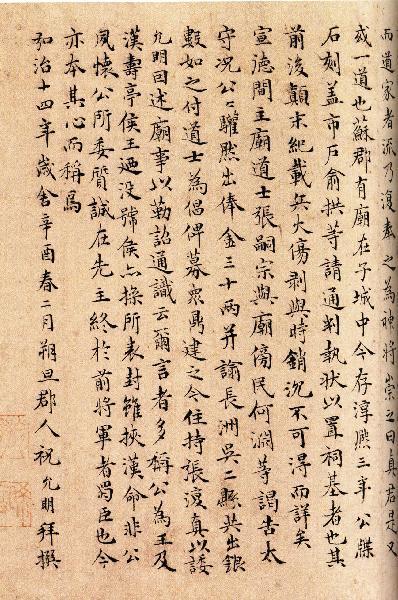 而道家者流乃復奉之為神將崇之曰真君是又
或一道也蘇郡有廟在子城中今存淳熙三年公牒
石刻蓋市戶俞拱等請通判執狀以置祠基者也其
前後顛末紀載兵火傷剥與時銷沉不可得而詳矣
宣德間主廟道士張嗣宗與廟傍民何淵等謁告太
守况公公驩然出俸金三十兩并諭長洲吳二縣共出銀
數如之付道士為倡俾募衆鼎建之今住持張復真以諉
允明囙述廟事以勒詔通識云爾言者多稱公為王及
漢壽亭侯王廼没號侯亦操所表封雖挾漢命非公
夙懷公所委質誠在先主終於前將軍者蜀臣也今
亦本其心而稱焉
弘治十四年歲舍辛酉春二月朔旦郡人祝允明拜撰